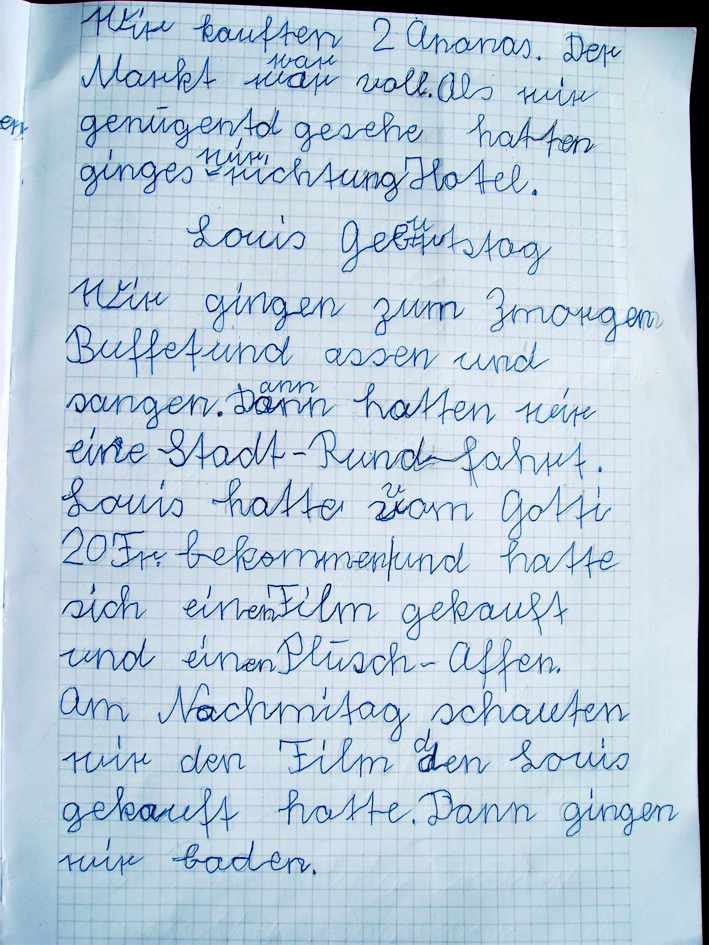 Wir kauften 2 Ananas. Der
Markt war voll. Als wir
genügentd gesehe hatten
ginges wir richtung Hotel.
Louis Geburtstag
Wir gingen zum Zmorgen
Buffet und assen und
sangen. Dann hatten wir
eine Stadt-Rund-fahrt.
Louis hatte vom Gotti
20 Fr. bekommen und hatte
sich einen Film gekauft
und einen Plüsch-Affen.
Am Nachmitag schauten
wir den Film den Louis
gekauft hatte. Dann gingen
wir baden.
en